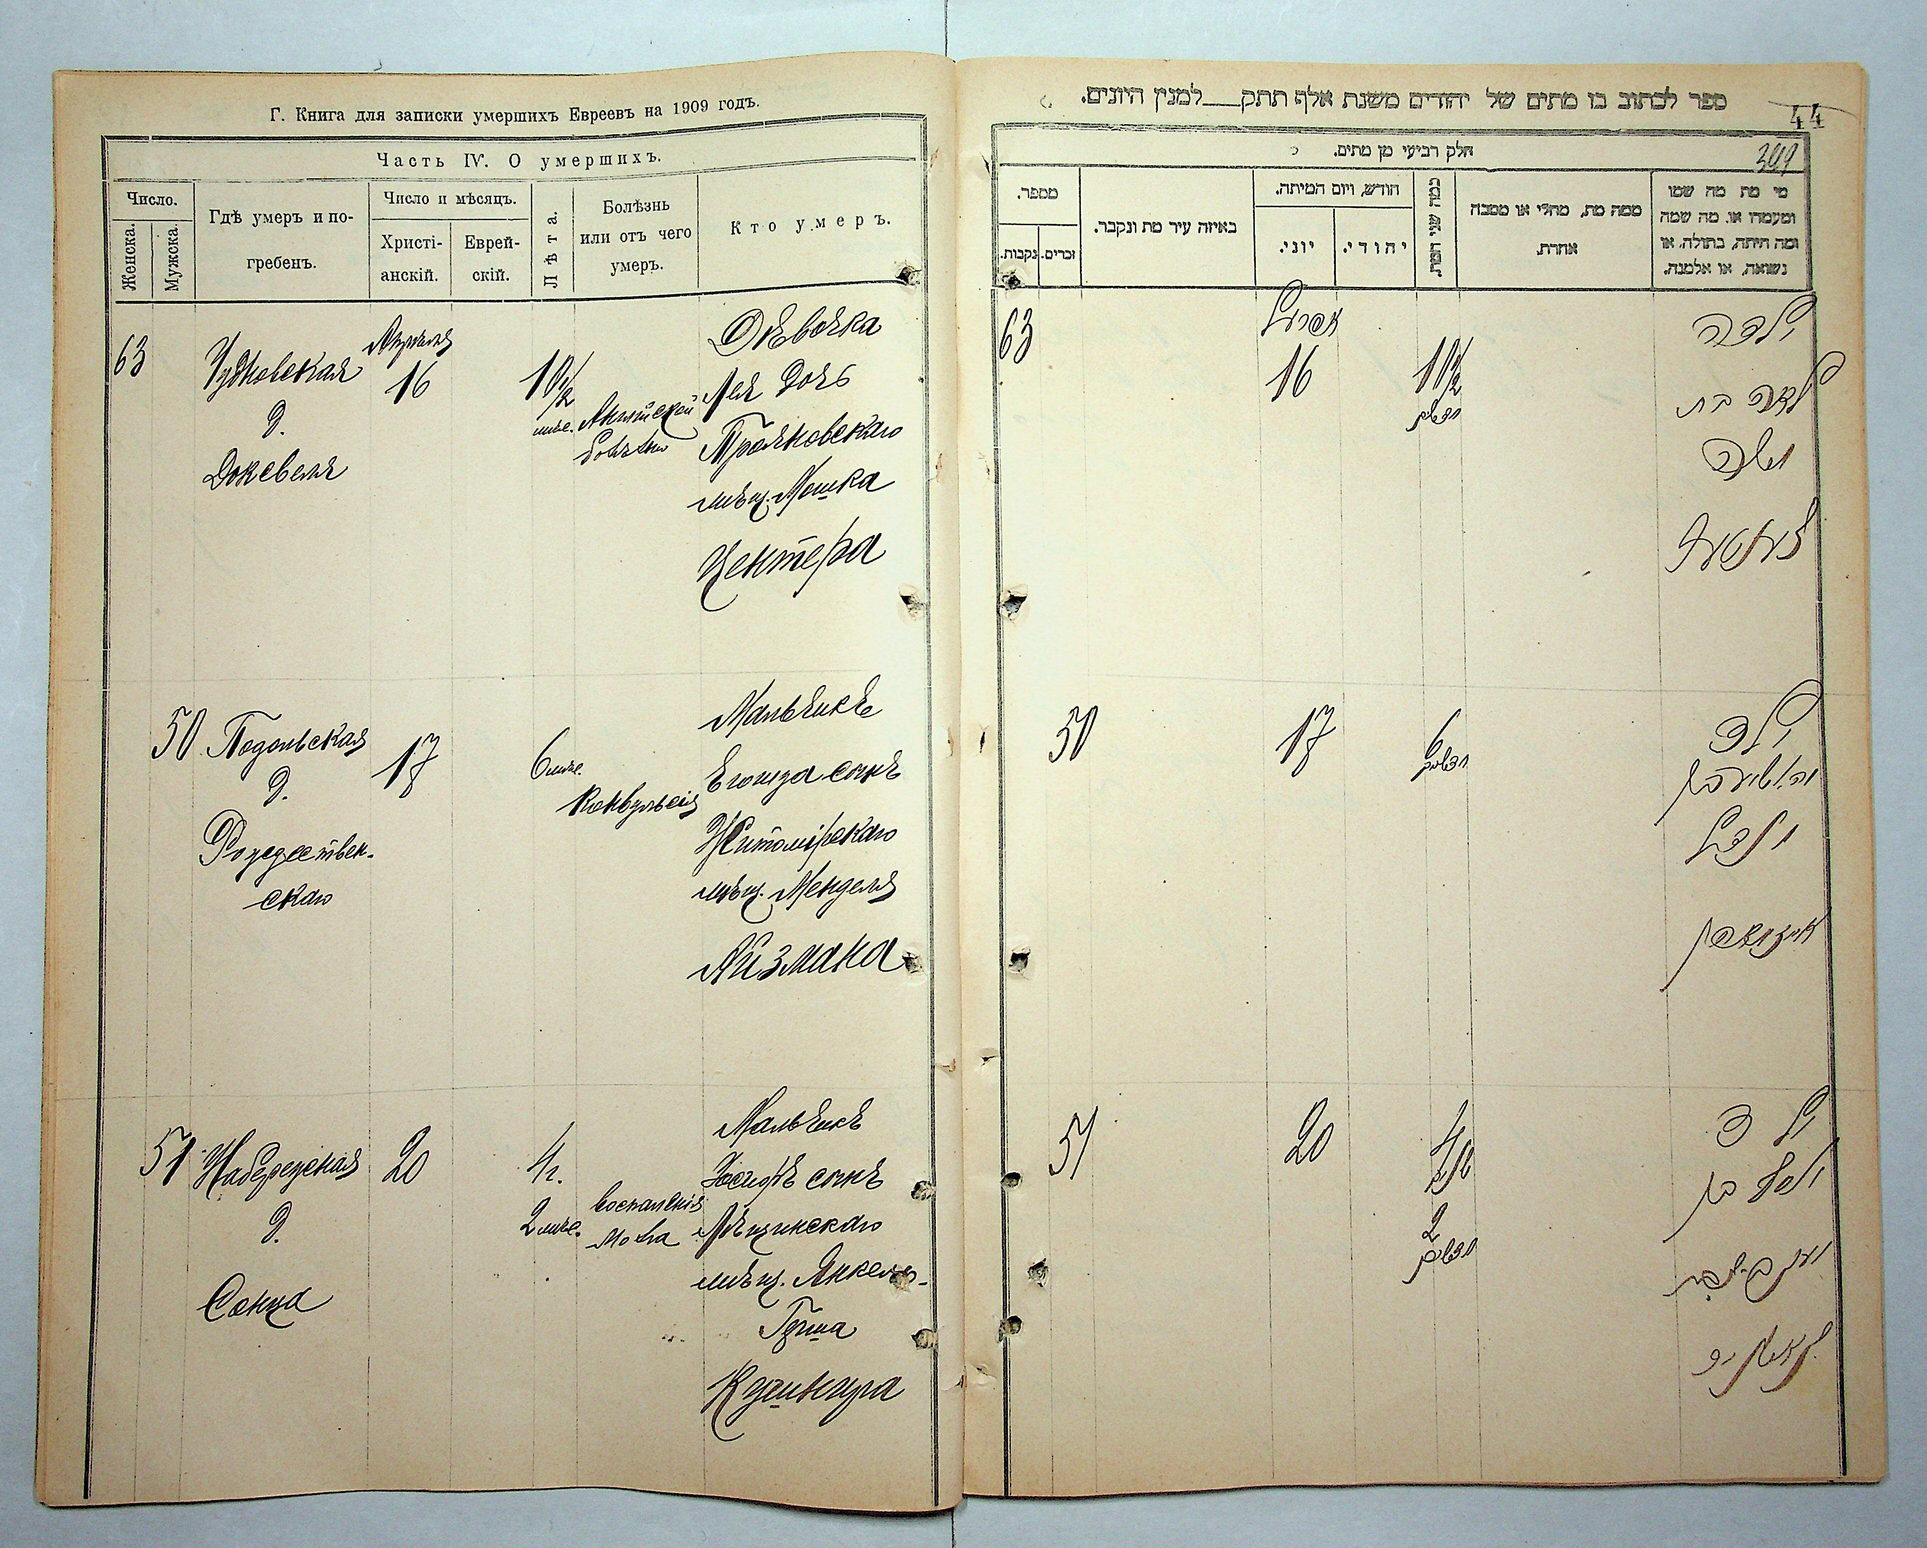 Г. Книга для записки умершихъ Евреевъ на 1909 годъ.
Часть IV. О умершихъ.
Число.
Женска.
Мужска.
Гдѣ умеръ и по-
гребенъ.
Число и мѣсяцъ.
Христі-
анскій.
Еврей-
скій.
Лѣта.
Болѣзнь
или отъ чего
умеръ.
Кто умеръ.
63
Чудновская
д.
Апрѣля
16
10 1/2
мѣс.
Английской
Дѣвочка
Лея дочь
мѣщ. Мошка
Центера
50
Подольская
д.
Рождествен-
скаго
17
6 мѣс.
Конвульсія
Мальчикъ
сынъ
Житомірскаго
мѣщ. Менделя
Айзмана
51
Набережная
д.
20
4 г.
2 мѣс.
воспаленія
мозга
Мальчикъ
Іосифъ сынъ
мѣщ. Янкель-
Герша
Кушнира
ספר לכתוב בו מתים של יהודים משנת אלף תתק___למנין היונים.
44
חלק רביעי מן מתים.
מספר.
נקבות.
זכרים.
באיזה עיר מת ונקבר.
חודש, ויום המיתה.
יוני.
יהודי.
כמה שני המת.
ממה מת, מחלי או מסבה
אחרת.
מי מת מה שמו
ומעמדו או, מה שמה
ומה היתה, בתולה, או
נשואה, או אלמנה.
63
אפריל
16
10 1/2
חדשים
ילדה
לאה בת
משה
צענטער
50
17
6
חדשים
ילד
מענדל
אייזמאן
51
20
4
שנים
2
חדשים
ילד
יוסף בן
יעקב צבי
קושניר